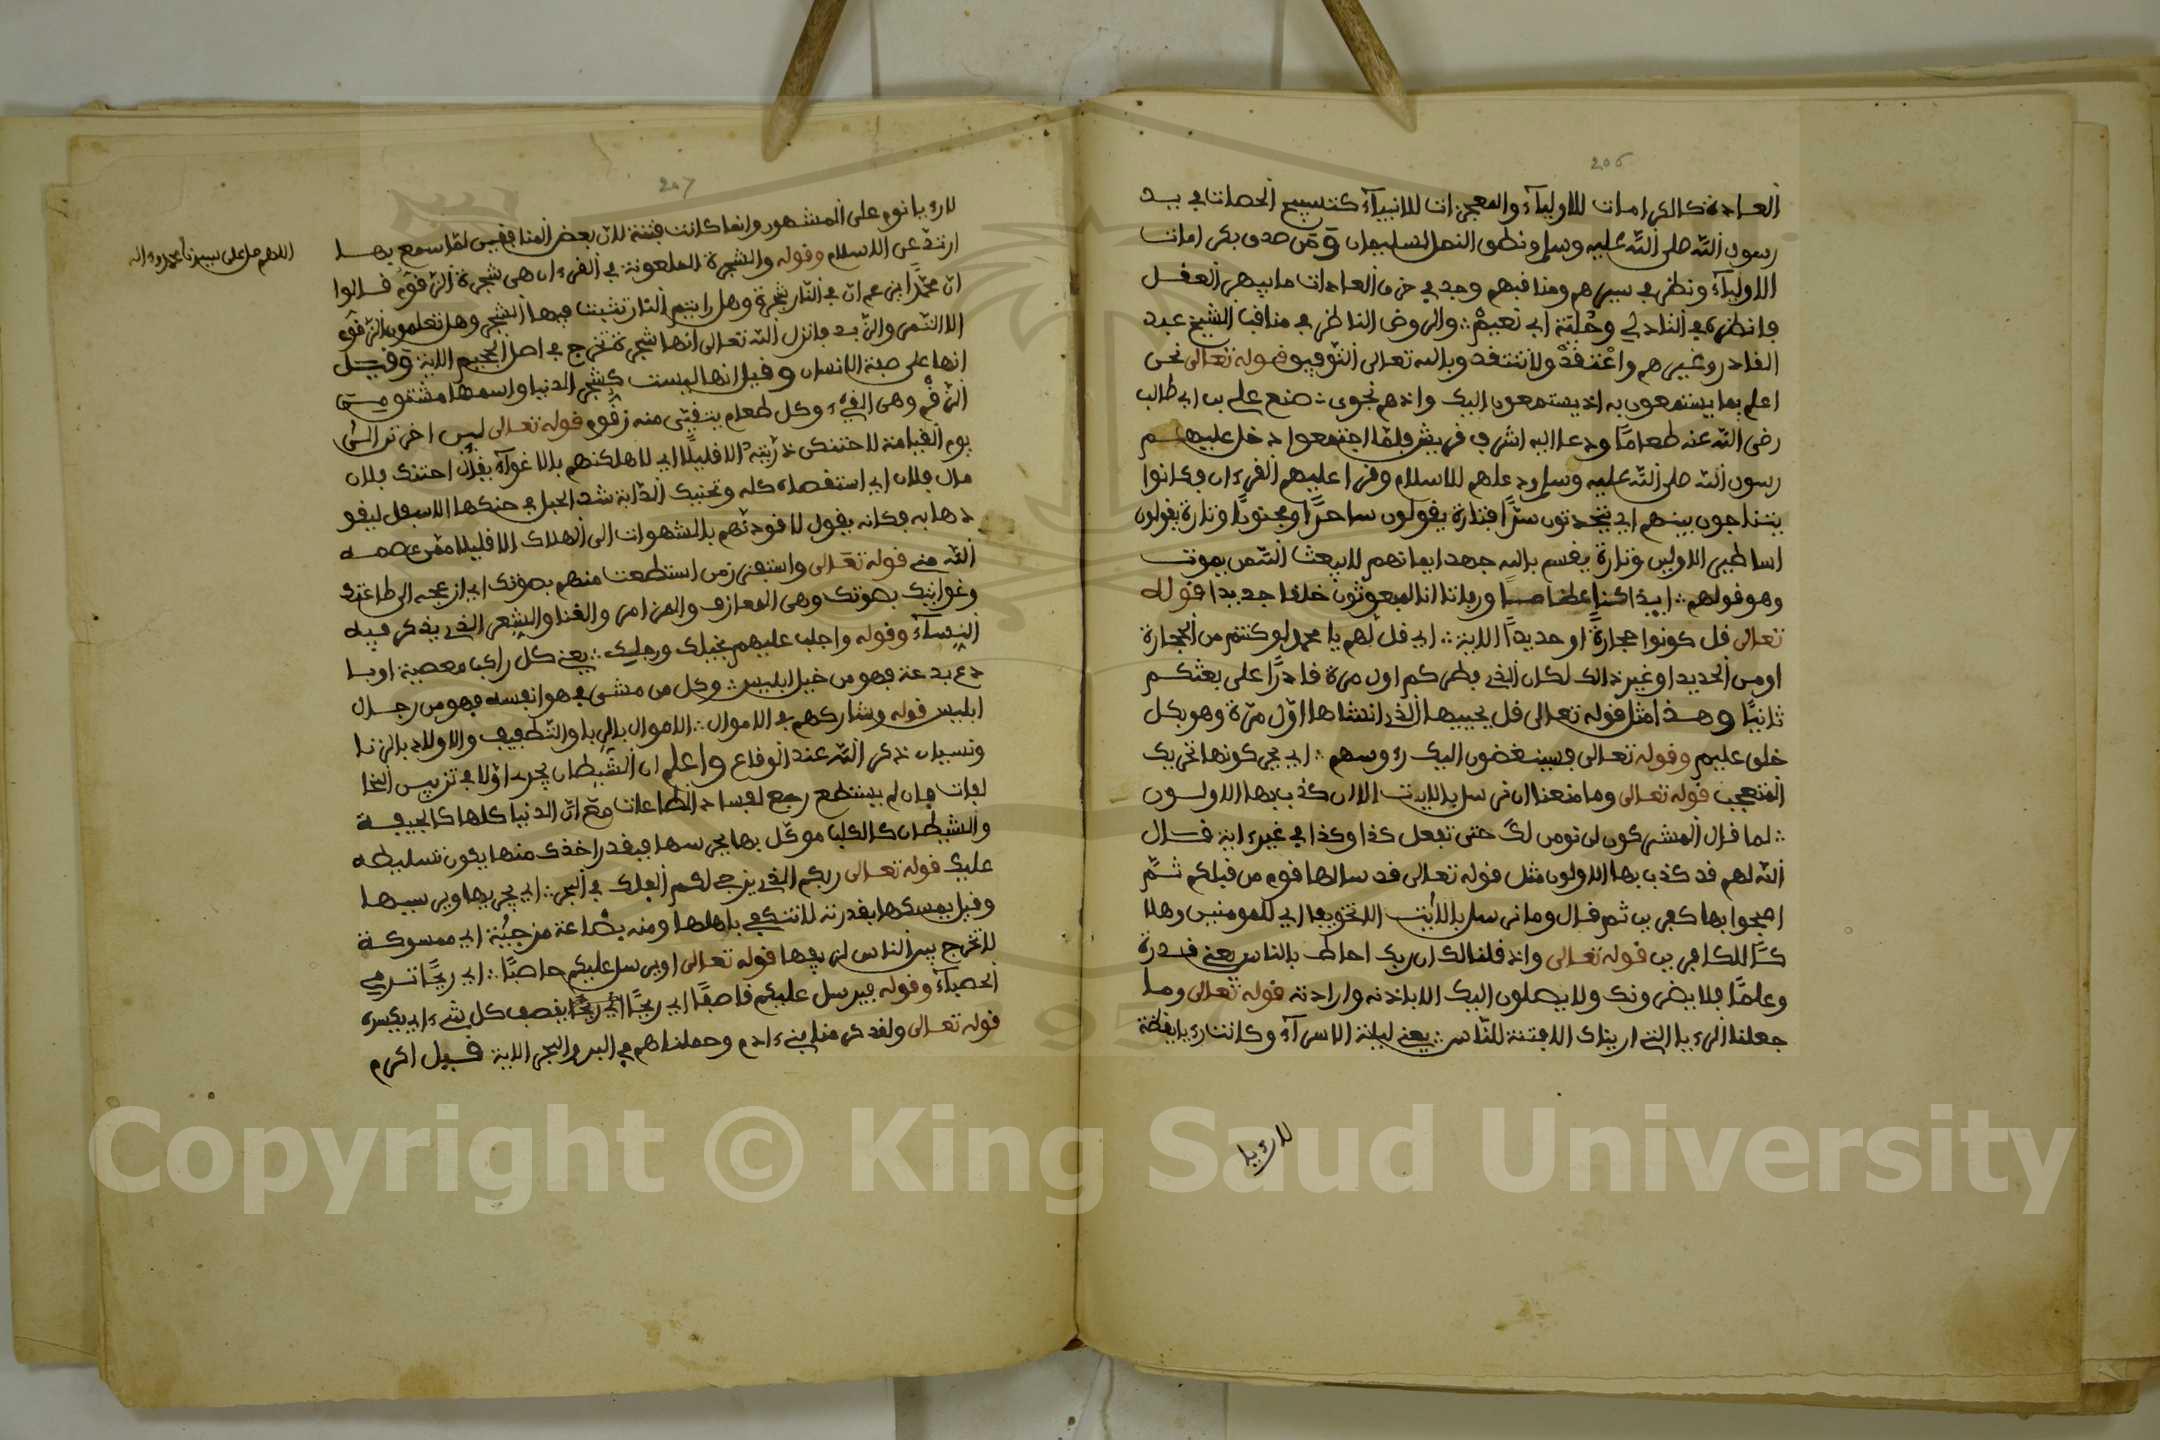 206
العادة كالكرامات للاولياء والمعجزات للانبياء كتسبيح الحصات في يد
رسول الله صلى الله عليه وسلم ونطق النمل لسليمان ومن صدق بكرامات
الاولياء ونظر في سيرهم ومناقبهم وجد في خرق العادات ما يبهر العقل
فانظره في الشاذلي وحلية ابي نعيم والروض الناظر في مناقب الشيخ عبد
القادر وغيرهم واعتقد ولا تنتقد وبالله تعالى التوفيق قوله تعالى نحن
اعلم بما يستمعون به اذ يستمعون اليك واذ هم نجوى صنع علي بن ابي طالب
رضي الله عنه طعاما ودعا اليه اشراف قريش فلما اجتمعوا دخل عليهم
رسول الله صلى الله عليه وسلم ودعاهم للاسلام وقرا عليهم القرءان فكانوا
يتناجون بينهم اي يتحدثون سرا فتارة يقولون ساحرا ومجنونا وتارة يقولون
اساطير الاولين وتارة يقسم بالله جهد ايمانهم لا يبعث الله من يموت
وهو قولهم ايذا كنا عظاما ورفاتا انا لمبعوثون خلقا جديدا قوله
تعالى قل كونوا حجارة او حديدا الاية اي قل لهم يا محمد لو كنتم من الحجارة
او من الحديد او غير ذالك لكان الذي فطركم اول مرة قادرا على بعثكم
ثانيا وهذا مثل قوله تعالى قل يحييها الذي انشاها اول مرة وهو بكل
خلق عليم وقوله تعالى فسينغضون اليك رءوسهم اي يحركونها تحريك
المتعجب قوله تعالى وما منعنا ان نرسل بالايت الا ان كذب بها الاولون
لما قال المشركون لن نومن لك حتى تفعل كذا وكذا في غير ءاية قال
الله لهم قد كذب بها الاولون مثل قوله تعالى قد سالها قوم من قبلكم ثم
اصبحوا بها كفرين ثم قال وما نرسل بالايت الا تخويفا اي للمومنين وهلا
كا للكافرين قوله تعالى واذ قلنا لك ان ربك احاط بالناس يعني قدرة
وعلما فلا يضرونك ولا يصلون اليك الا باذنه وارادته قوله تعالى وما
جعلنا الرءيا التي اريناك الا فتنة للناس يعني ليلة الاسراء وكانت رءيا يقظة
لارءيا
207
لارءيا نوم على المشهور وانما كانت فتنة لان بعض المنافقين لما سمع بها
ارتد عن الاسلام وقوله والشجرة الملعونة في القرءان هي شجرة الزقوم قالوا
ان محمدا يزعم ان في النار شجرة وهل رايتم النار تنبت فيها الشجر وهل تعلمون الزقوم
الا التمر والزبد فانزل الله تعالى انها شجرة تخرج في اصل الجحيم الاية وقيل
انها على صفة الانسان وقيل انها ليست كشجر الدنيا واسمها مشتق من
الزقم وهي القيء وكل طعام يتقيى منه زقوم قوله تعالى لين اخرتن الى
يوم القيامة لاحتنكن ذريته الا قليلا اي لاهلكنهم بالاغواء يقال احتنك فلان
مال فلان اي استقصاه كله وتحنيك الدابة شد الحبل في حنكها الاسفل ليقو
دها به فكانه يقول لاقودنهم بالشهوات الى الهلاك الا قليلا ممن عصمه
الله مني قوله تعالى واستفزز من استطعت منهم بصوتك اي ازعجه الى طاعتك
وغوايتك بصوتك وهي المعازف والمزامر والغنا والشعر الذي يذكر فيه
النساء وقوله واجلب عليهم بخيلك ورجلك يعني كل راكب معصية او با
دع بدعة فهو من خيل ابليس وكل من مشى في هوا نفسه فهو من رجال
ابليس قوله وشاركهم في الاموال الاموال بالربا والتطفيف والاولاد بالزنا
ونسيان ذكر الله عند الوقاع واعلم ان الشيطان يجره اولا في تزيين المخا
لفات فان لم يستطع رجع لفساد الطاعات مع ان الدنيا كلها كالجيفة
والشيطان كالكلب موكل بها يحرسها فبقدر اخذك منها يكون تسليطه
عليك قوله تعالى ربكم الذي يزجي لكم الفلك في البحر اي يجريها ويسيرها
وقيل يمسكها بقدرته لا تنكفي باهلها ومنه بضاعة مزجية اي ممسوكة
لا تخرج بين الناس لزيفها قوله تعالى او يرسل عليكم حاصبا اي ريحا ترمي
الحصباء وقوله فيرسل عليكم قاصفا اي ريحا يقصف كل شيء اي يكسره
قوله تعالى ولقد كرمنا بني ءادم وحملناهم في البر والبحر الاية قيل اكرم
اللهم صل على سيدنا محمد وءاله
Copyright © King Saud University